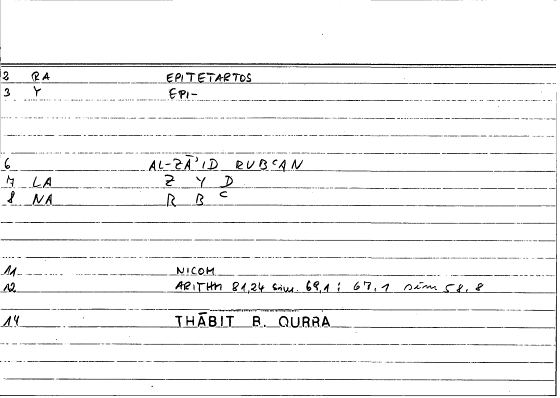 2 RA EPITETARTOS
3 Y EPI-
6 AL-ZĀʾID RUBʿAN
7 LA Z Y D
8 NA R B ʿ
11 NICOM
12 ARITHM 81,24 sim. 69,1; 67,1 sim 58,8
14 THĀBIT B. QURRA